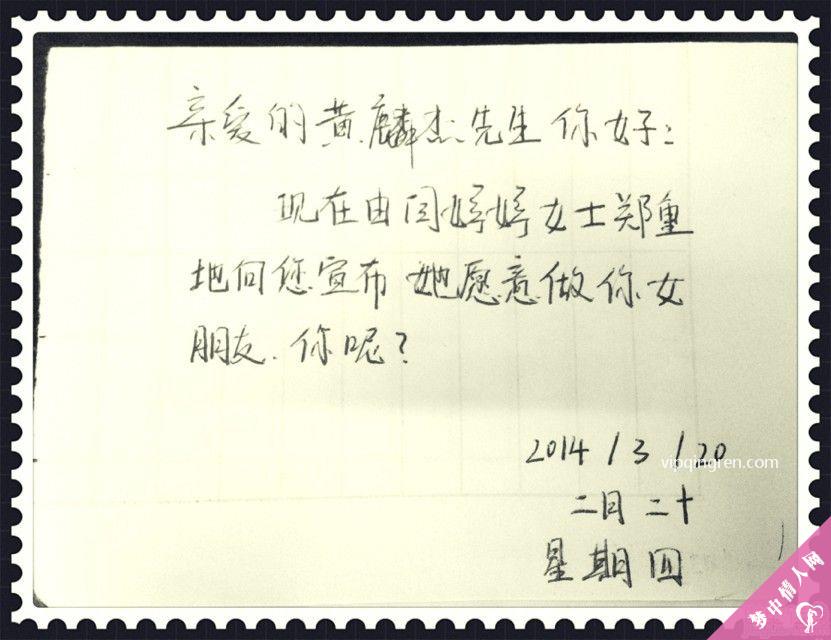 亲爱的黄麟杰先生你好：
现在由闫婷婷女士郑重
地向您宣布 她愿意做你女
朋友. 你呢？
2014 / 3 / 20
vipqingren.com
二月二十
星期四
梦中情人网